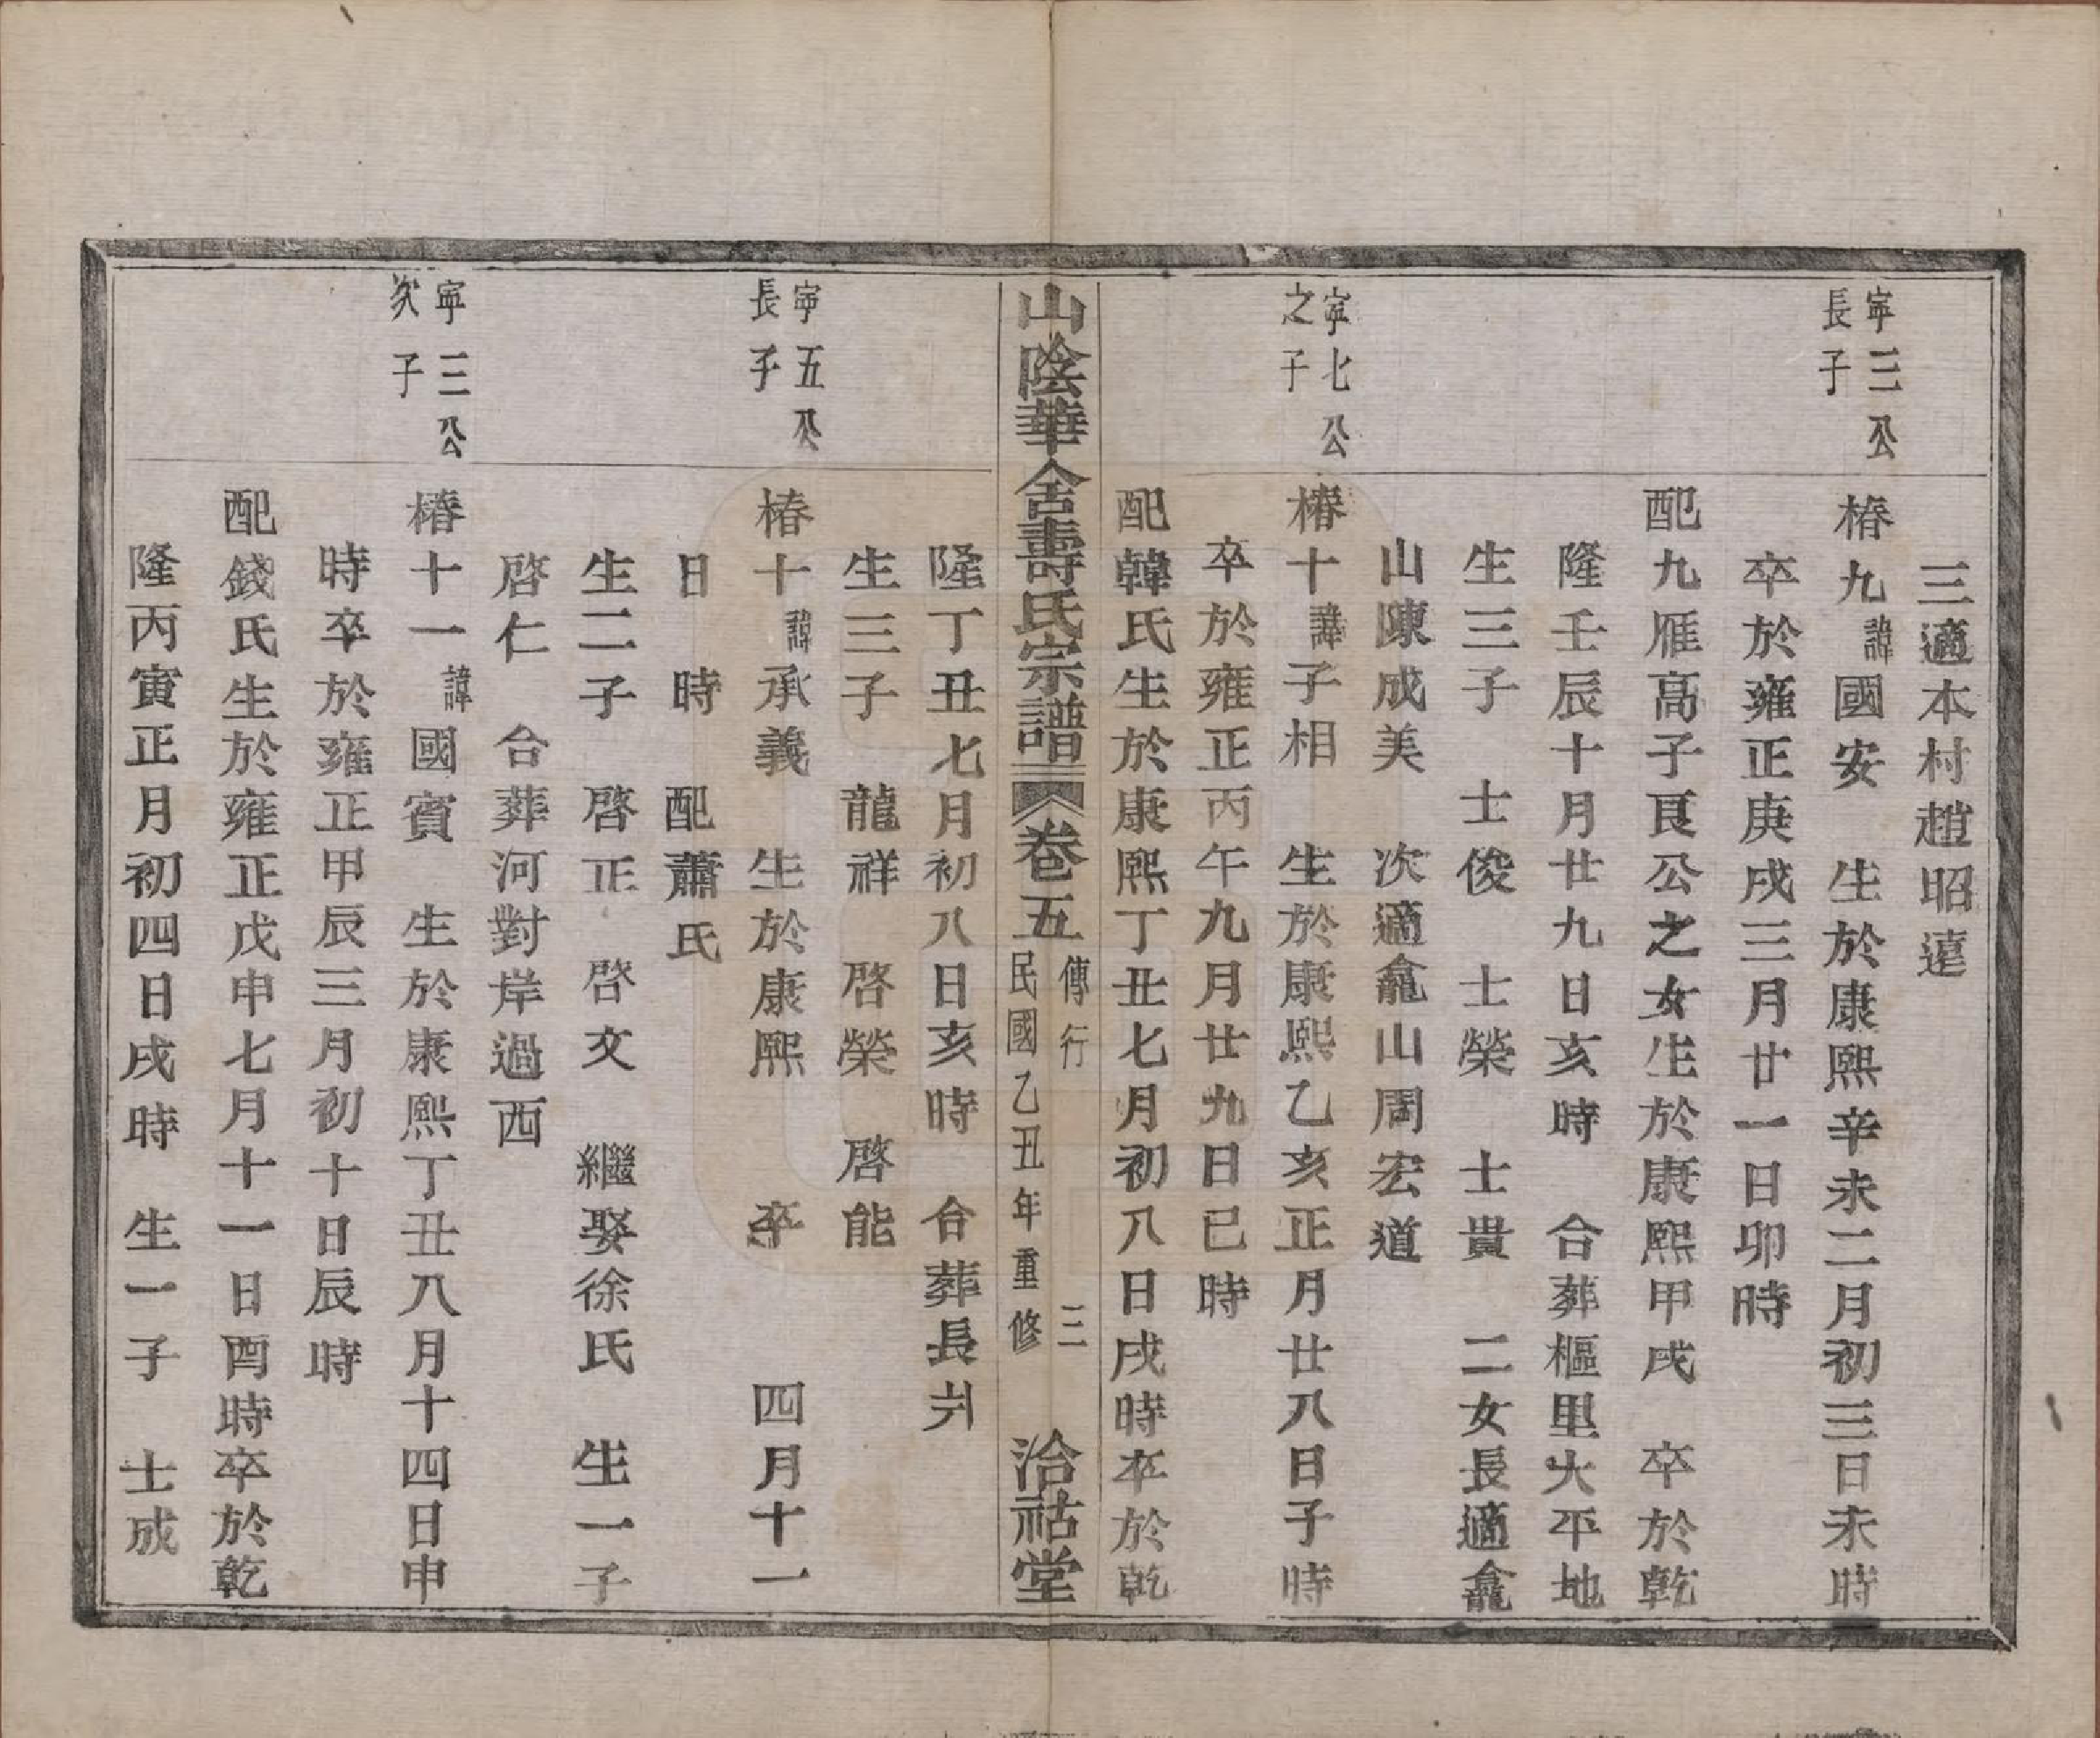 三適本村趙昭遠
寧三公
長子
椿九諱國安　生於康熙辛未二月初三日未時
卒於雍正庚戌三月廿一日卯時
配九雁高子良公之女生於康熙甲戌　卒於乾
隆壬辰十月廿九日亥時　合葬樞里大平地
生三子　士俊　士榮　士貴　二女長適龕
山陳成美　次適龕山周宏道
寧七公
之子
椿十諱子相　生於康熙乙亥正月廿八日子時
卒於雍正丙午九月廿九日巳時
配韓氏生於康熙丁丑七月初八日戌時卒於乾
山陰華舍壽氏宗譜　卷五　傳行　三
民國乙丑年重修
洽祜堂
隆丁丑七月初八日亥時　合葬長爿
生三子　龍祥　啓榮　啓能
寧五公
長子
椿十諱承義　生於康熙　卒　四月十一
日　時　配蕭氏
生二子　啓正　啓文　繼娶徐氏　生一子
啓仁　合葬河對岸過西
寧三公
次子
椿十一諱國賓　生於康熙丁丑八月十四日申
時卒於雍正甲辰三月初十日辰時
配錢氏生於雍正戊申七月十一日酉時卒於乾
隆丙寅正月初四日戌時　生一子　士成